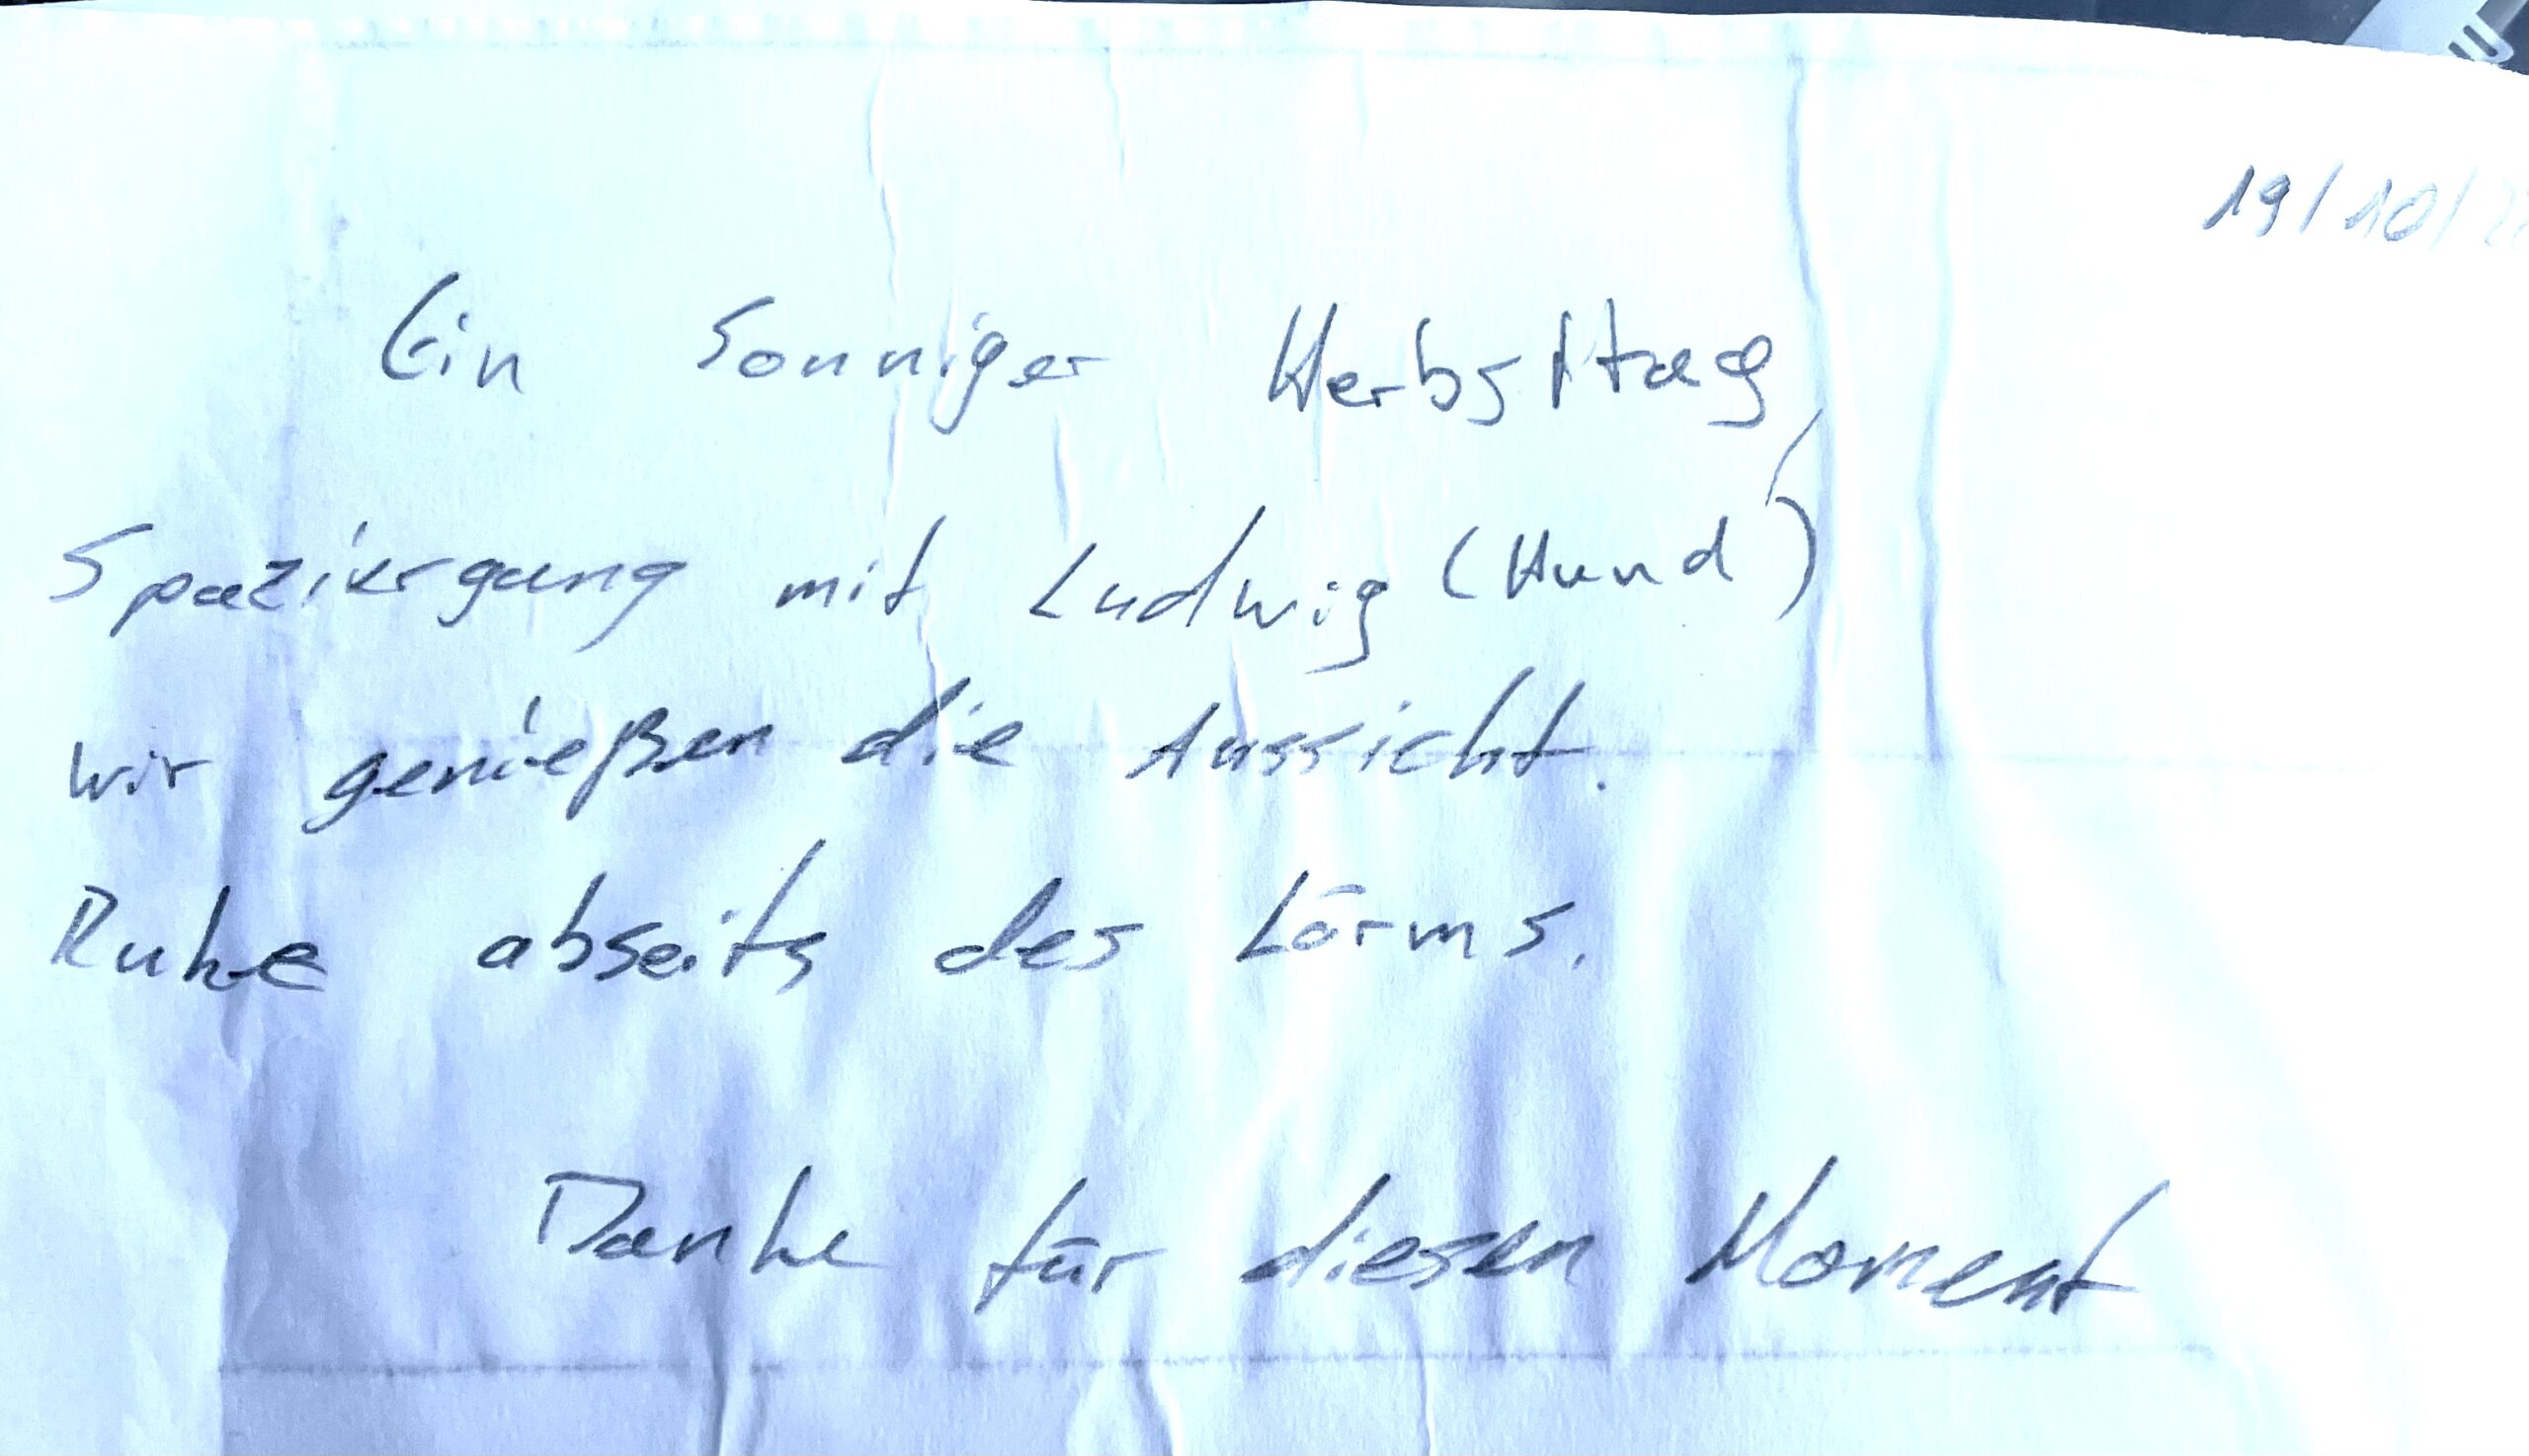 19/10/
Ein sonniger Herbsttag,
Spaziergang mit Ludwig (Hund)
Wir genießen die Aussicht.
Ruhe abseits des Lärms.
Danke für diesen Moment